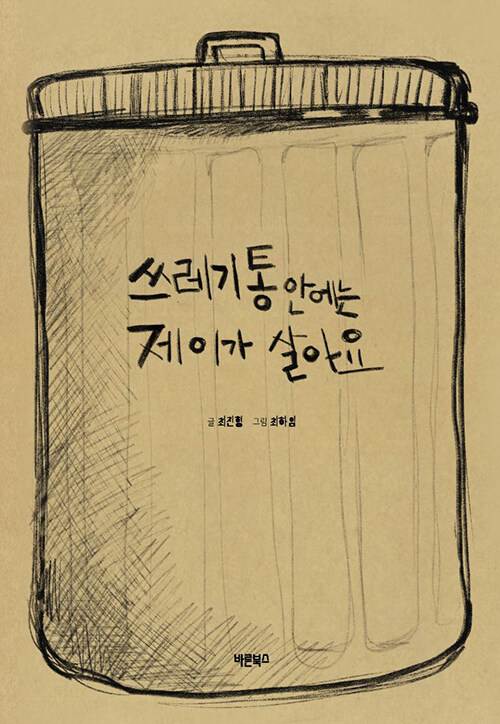 쓰레기통 안에는
제이가 살아요
글 최진형 그림 최하임
바른북스